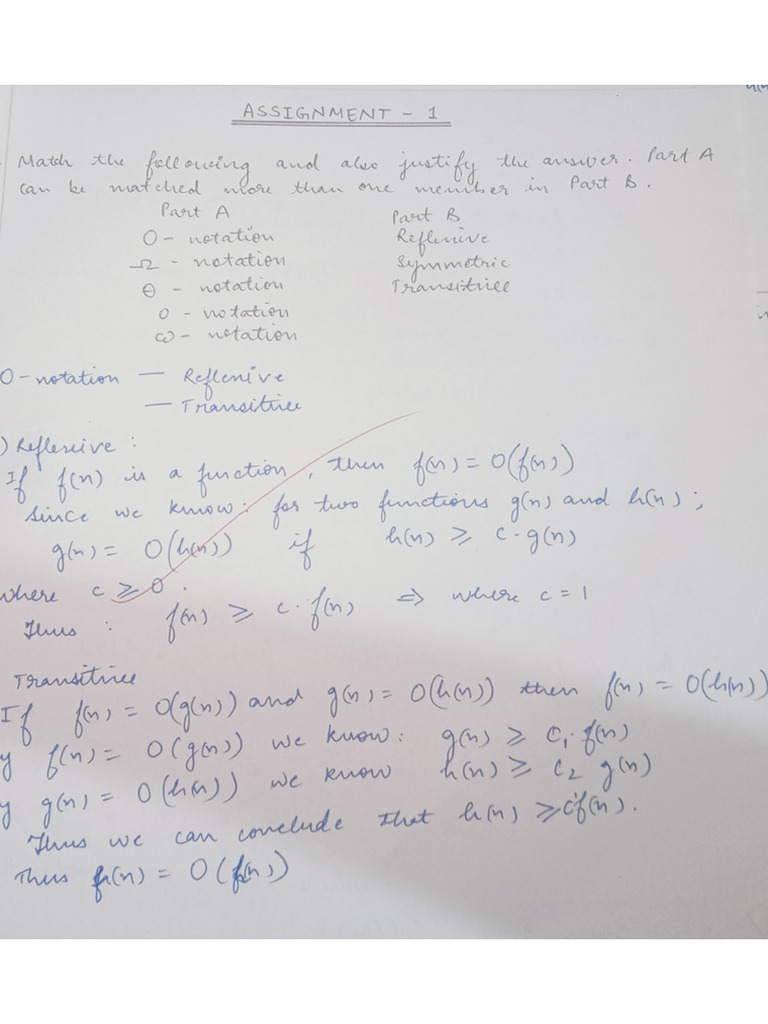 ASSIGNMENT - 1
Match the following and also justify the answer. Part A
can be matched more than one member in Part B.
Part A Part B
O - notation Reflexive
Ω - notation Symmetric
θ - notation Transitive
o - notation
ω - notation
O - notation — Reflexive
— Transitive
) Reflexive :
If f(n) is a function, then f(n) = O(f(n))
Since we know: for two functions g(n) and h(n);
g(n) = O(h(n)) if h(n) ⩾ c·g(n)
where c ⩾ 0.
Thus : f(n) ⩾ c·f(n) ⇒ where c = 1
Transitive
If f(n) = O(g(n)) and g(n) = O(h(n)) then f(n) = O(h(n))
y f(n) = O(g(n)) we know: g(n) ⩾ c₁·f(n)
y g(n) = O(h(n)) we know h(n) ⩾ c₂ g(n)
Thus we can conclude that h(n) ⩾ c'f(n).
Thus h(n) = O(f(n))